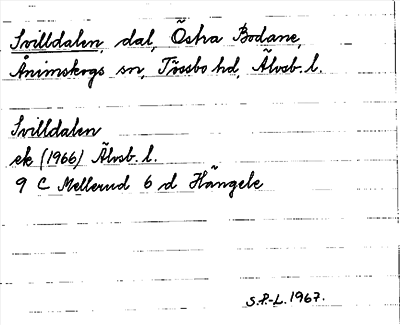 Svilldalen, dal, Östra Bodane,
Ånimskogs sn, Tössbo hd, Älvsb. l.
Svilldalen
ek (1966) Älvsb. l.
9 C Mellerud 6 d Hängele
S.P.-L. 1967.